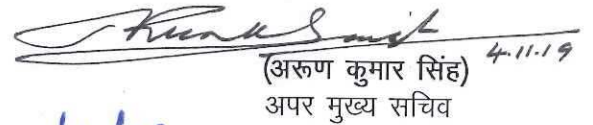 4.11.19
(अरूण कुमार सिंह)
अपर मुख्य सचिव